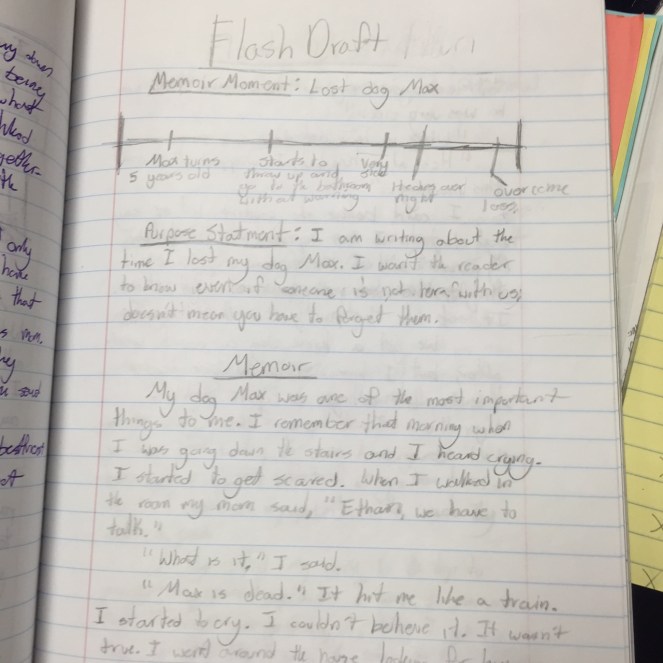 my down
being
what
only
have
that
Flash Draft
Memoir Moment: Lost dog Max
Max turns
5 years old
starts to
throw up and
go to the bathroom
without warning
very
sick
over
night
overcome
loss
Purpose Statment: I am writing about the
time I lost my dog Max. I want the reader
to know even if someone is not here with us,
doesn't mean you have to forget them.
Memoir
My dog Max was one of the most important
things to me. I remember that morning when
I was going down the stairs and I heard crying.
I started to get scared. When I walked in
the room my mom said, "Ethan, we have to
talk."
"What is it," I said.
"Max is dead." It hit me like a train.
I started to cry. I couldn't believe it. It wasn't
true. I went around the house looking for